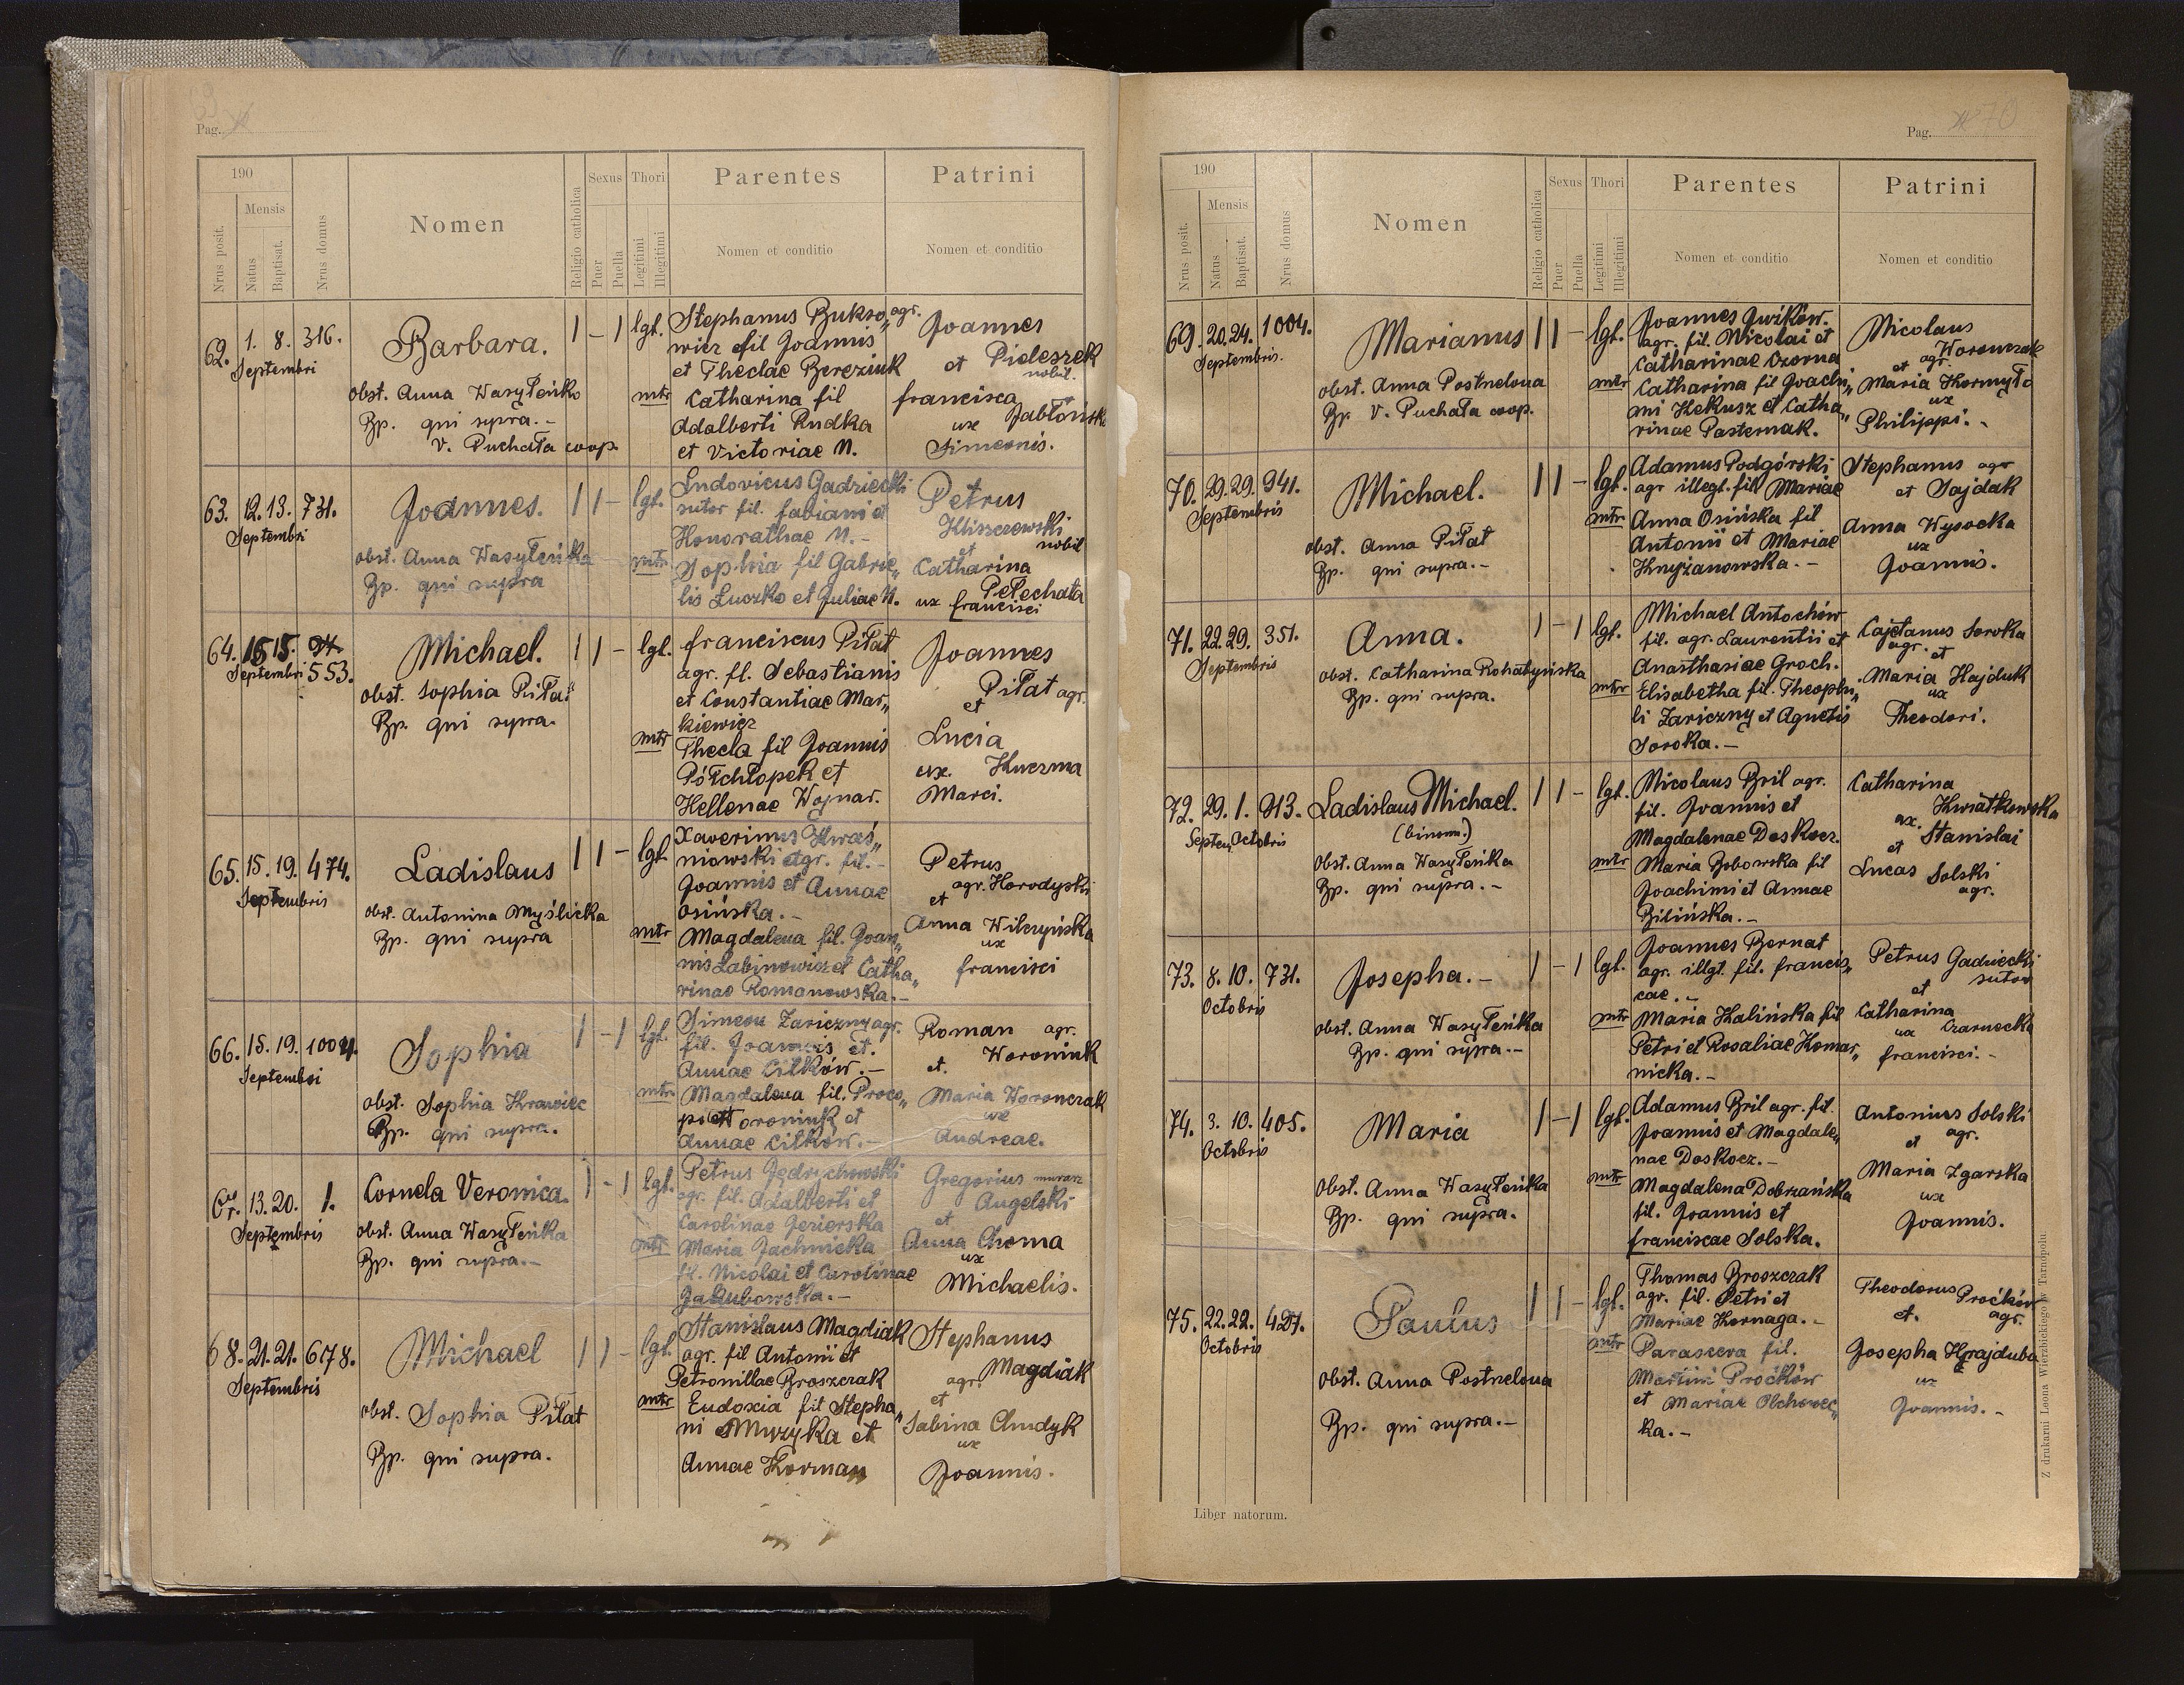 Pag.
190
Nrus posit.
Mensis
Natus
Baptisat.
Nrus domus
Nomen
Religio catholica
Sexus
Puer
Puella
Thori
Legitimi
Illegitimi
Parentes
Nomen et conditio
Patrini
Nomen et conditio
62. 1. 8. 316.
Septembri
Barbara.
obst. Anna Wasyłeńko
Bp. qui supra.-
V. Puchała coop.
1 - 1 lgt.
Stephanus Bukso„ agr.
wicz fil Joannis
et Theclae Bereziuk
mtr Catharina fil
Adalberti Rudka
et Victoriae N.
Joannes
et Pideszek
nobil.
francisca
Jabłońsk
ux
Simeonis.
63. 12. 13. 731.
Septembri
Joannes.
obst. Anna Wasyłeńka
Bp. qui supra
1 1 - lgt.
Ludovicus Gadziecki
sutor fil. fabiani et
Honorathae N.-
mtr Sophia fil Gabrie„
lis Luczko et Juliae N.
Petrus
Kliszczowski
nobil
et
Catharina
Pełechata
ux francisci
64. 15 15. 553.
Septembri
Michael.
obst. Sophia Piłat
Bp. qui supra.
1 1 - lgt.
franciscus Piłat
agr. fl. Sebastianis
et Constantiae Mar„
kiewicz
mtr Thecla fil Joannis
Półchłopek et
Hellenae Wojnar.
Joannes
Piłat agr.
et
Lucia
ux. Kuczma
Marci.
65. 15. 19. 474.
Septembris
Ladislaus
obst. Antonina Myślicka
Bp. qui supra
1 1 - lgt.
Xaverinus Kwaś„
niowski agr. fil.-
Joannis et Annae
Osińska.-
mtr Magdalena fil. Joan„
nis Labinowicz et Catha„
rinae Romanowska.-
Petrus
agr. Horodyski
et
Anna Wilczyńska
ux
francisci
66. 15. 19. 1004.
Septembri
Sophia
obst. Sophia Krawiec
Bp. qui supra.
1 - 1 lgt.
Simeon Zariczny agr.
fil. Joannis et.
Annae Citków.-
mtr Magdalena fil. Proco„
pi Woroniuk et
Annae Citków.-
Roman agr.
Woroniuk
et.
Maria Woronczak
ux
Andreae.
67. 13. 20. 1.
Septembris
Cornela Veronica.
obst. Anna Wasyłeńka
Bp. qui supra.-
1 - 1 lgt.
Petrus Jędrychowski
agr. fil. Adalberti et
Carolinae Jezierska
mtr Maria Jachnicka
fil. Nicolai et Carolinae
Jakubowska.-
Gregorius murarz
Angelski
et
Anna Choma
ux
Michaelis.
68. 21. 21. 678.
Septembris
Michael
obst. Sophia Piłat
Bp. qui supra.
1 1 - lgt.
Stanislaus Magdiak
agr. fil Antonii et
Petronillae Broszczak
mtr Eudoxia fil Stepha„
ni Muzyka et
Annae Korman
Stephanus
Magdiak
agr.
et
Sabina Chudyk
ux
Joannis.
Pag. 70
190
Nrus posit.
Mensis
Natus
Baptisat.
Nrus domus
Nomen
Religio catholica
Sexus
Puer
Puella
Thori
Legitimi
Illegitimi
Parentes
Nomen et conditio
Patrini
Nomen et conditio
69. 20. 24. 1004.
Septembris.
Marianus
obst. Anna Postnelova
Bp. V. Puchała coop.
1 1 - lgt.
Joannes Ćwików.
agr. fil. Nicolai et
Catharinae Ozorna
mtr Catharina fil Joachi„
mi Kekusz et Catha„
rinae Pasternak.
Nicolaus
Woronczak
et agr.
Maria Kormyło
ux
Philippi.-
70. 29. 29. 941.
Septembris
Michael.
obst. Anna Piłat
Bp. qui supra.-
1 1 - lgt.
Adamus Podgórski
agr illegt. fil Mariae
mtr Anna Osińska fil
Antonii et Mariae
Knyżanowska.-
Stephanus agr
et Sajdak
Anna Wysocka
ux
Joannis.
71. 22. 29. 351.
Septembris
Anna.
obst. Catharina Rohatyńska
Bp. qui supra.
1 - 1 lgt.
Michael Antochów
fil. agr. Laurentii et
Anasthasiae Groch.
mtr Elisabetha fil. Theophi„
li Zariczny et Agnetis
Soroka.-
Cajetanus Soroka
agr. et
Maria Hajduk
ux
Theodori.
72. 29. 1. 913.
Septem. Octobris
Ladislaus Michael.
(binom.)
Obst. Anna Wasyłeńka
Bp. qui supra.-
1 1 - lgt.
Nicolaus Bril agr.
fil. Joannis et
Magdalenae Doskocz.
mtr Maria Bobowska fil
Joachimi et Annae
Bilińska.-
Catharina
Kwiatkowska
ux. Stanislai
et
Lucas Solski
agr.
73. 8. 10. 731.
Octobris
Josepha.-
obst. Anna Wasyłeńka
Bp. qui supra.-
1 - 1 lgt.
Joannes Bernat
agr. illgt. fil. francis„
cae.-
mtr Maria Kalińska fil
Petri et Rosaliae Komar„
nicka.-
Petrus Gadziecki
sutor
et
Catharina
ux Czarnecka
francisci.-
74. 3. 10. 405.
Octobris
Maria
Obst. Anna Wasyłeńka
Bp. qui supra.
1 - 1 lgt.
Adamus Bril agr. fil.
Joannis et Magdale„
nae Doskocz.-
mtr Magdalena Dobrzańska
fil. Joannis et
franciscae Solska.
Antonius Solski
et agr.
Maria Zgarska
ux
Joannis.
75. 22. 22. 427.
Octobris
Paulus
Obst. Anna Postnelova
Bp. qui supra.-
1 1 - lgt.
Thomas Broszczak
agr. fil. Petri et
Mariae Kornaga.-
mtr Parascera fil.
Martini Proćków
et Mariae Olchowec„
ka.-
Theodorus Proćków
et. agr.
Josepha Hrajduba
ux
Joannis.-
Liber natorum.
Z drukarni Leona Wierzbickiego w Tarnopolu.